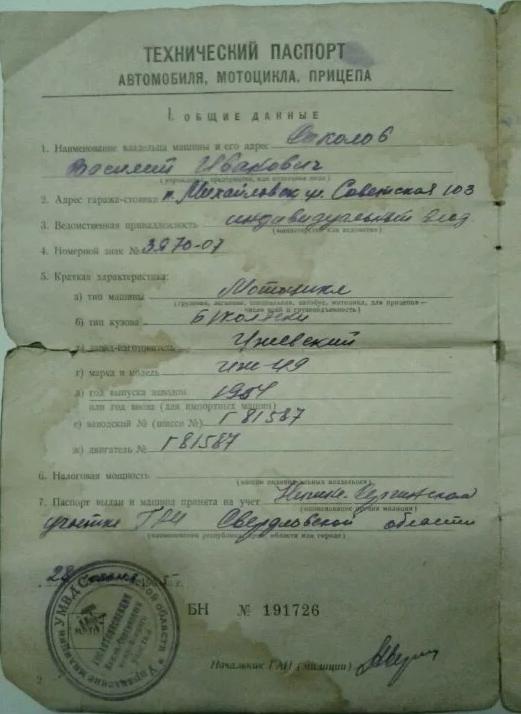 ТЕХНИЧЕСКИЙ ПАСПОРТ
АВТОМОБИЛЯ, МОТОЦИКЛА, ПРИЦЕПА
I. ОБЩИЕ ДАННЫЕ
1. Наименование владельца машины и его адрес Соколов
Василий Иванович
2. Адрес гаража-стоянки п. Михайловск ул. Советская 103
3. Ведомственная принадлежность индивидуальный
(министерство или ведомство)
4. Номерной знак № 3970-07
5. Краткая характеристика:
а) тип машины Мотоцикл
(грузовая, легковая, специальная, автобус, мотоцикл, для прицепов —
число осей и грузоподъемность)
б) тип кузова Б/коляски
в) завод-изготовитель Ижевский
г) марка и модель иж-49
д) год выпуска заводом 1954
или год ввоза (для импортных машин)
е) заводской № (шасси №) Г 81587
ж) двигатель № Г 81587
6. Налоговая мощность
7. Паспорт выдан и машина принята на учет Нижне-Сергинском
(наименование органа милиции)
участке ГАИ Свердловской области
(наименование республики, края, области или города)
28 г.
УМВД Управление милиции
БН № 191726
Начальник ГАИ (милиции)
2